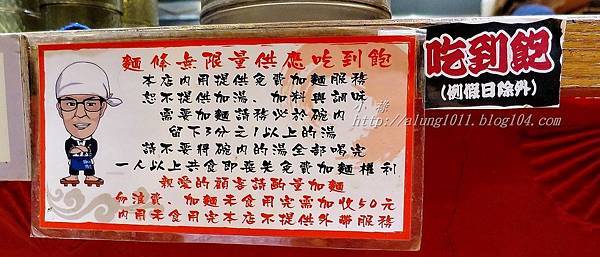 麵條無限量供應吃到飽
本店內用提供免費加麵服務
恕不提供加湯、加料與調味
需要加麵請務必於碗內
留下3分之1以上的湯
請不要將碗內的湯全部喝完
一人以上共食即喪失免費加麵權利
親愛的顧客請酌量加麵
勿浪費、加麵未食用完需加收50元
內用未食用完本店不提供外帶服務
吃到飽
(例假日除外)
小蓉
http://alung1011.blog104.com